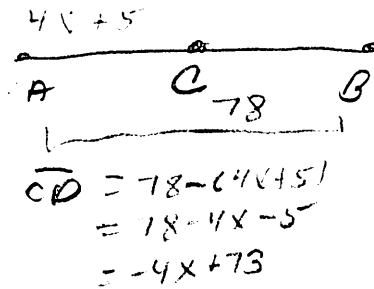 4x + 5
A C B
78
CD = 78-(4x+5)
= 78-4x-5
= -4x+73